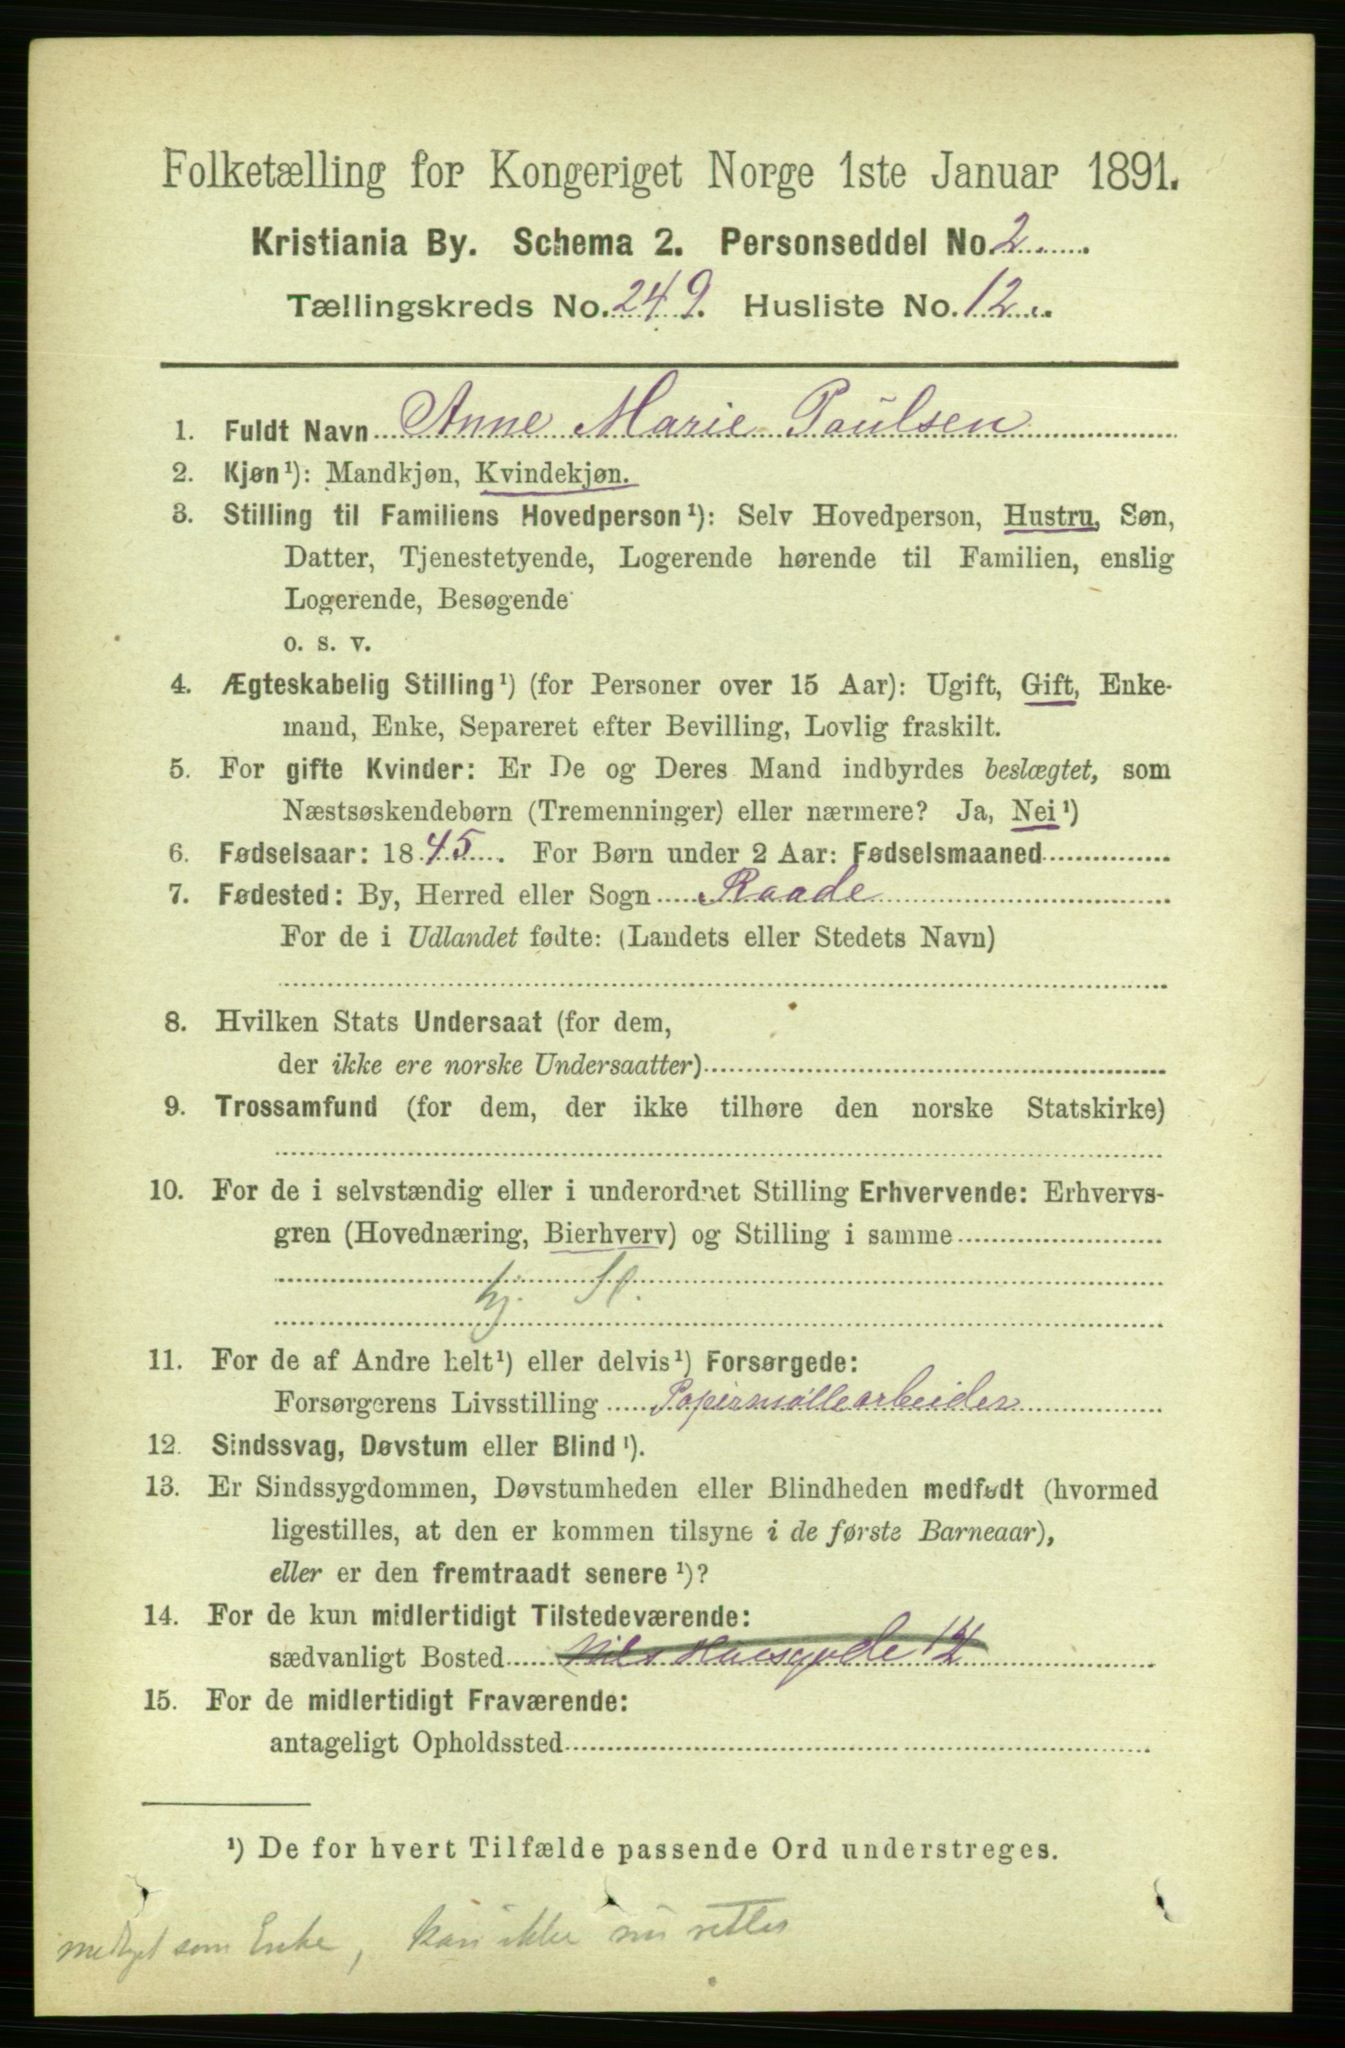 Folketælling for Kongeriget Norge 1ste Januar 1891.
Kristiania By. Schema 2. Personseddel No. 2
Tællingskreds No. 249. Husliste No. 12.
1. Fuldt Navn Anne Marie Paulsen
2. Kjøn¹): Mandkjøn, Kvindekjøn.
3. Stilling til Familiens Hovedperson¹): Selv Hovedperson, Hustru, Søn,
Datter, Tjenestetyende, Logerende hørende til Familien, enslig
Logerende, Besøgende
o. s. v.
4. Ægteskabelig Stilling¹) (for Personer over 15 Aar): Ugift, Gift, Enke-
mand, Enke, Separeret efter Bevilling, Lovlig fraskilt.
5. For gifte Kvinder: Er De og Deres Mand indbyrdes beslægtet, som
Næstsøskendebørn (Tremenninger) eller nærmere? Ja, Nei¹)
6. Fødselsaar: 1845. For Børn under 2 Aar: Fødselsmaaned
7. Fødested: By, Herred eller Sogn Raade
For de i Udlandet fødte: (Landets eller Stedets Navn)
8. Hvilken Stats Undersaat (for dem,
der ikke ere norske Undersaatter)
9. Trossamfund (for dem, der ikke tilhøre den norske Statskirke)
10. For de i selvstændig eller i underordnet Stilling Erhvervende: Erhvervs-
gren (Hovednæring, Bierhverv) og Stilling i samme
hj. St.
11. For de af Andre helt¹) eller delvis¹) Forsørgede:
Forsørgerens Livsstilling Papirmøllearbeider
12. Sindssvag, Døvstum eller Blind¹).
13. Er Sindssygdommen, Døvstumheden eller Blindheden medfødt (hvormed
ligestilles, at den er kommen tilsyne i de første Barneaar),
eller er den fremtraadt senere¹)?
14. For de kun midlertidigt Tilstedeværende:
sædvanligt Bosted Nils 12
15. For de midlertidigt Fraværende:
antageligt Opholdssted
¹) De for hvert Tilfælde passende Ord understreges.
medtaget som Enke, kan ikke nu rettes